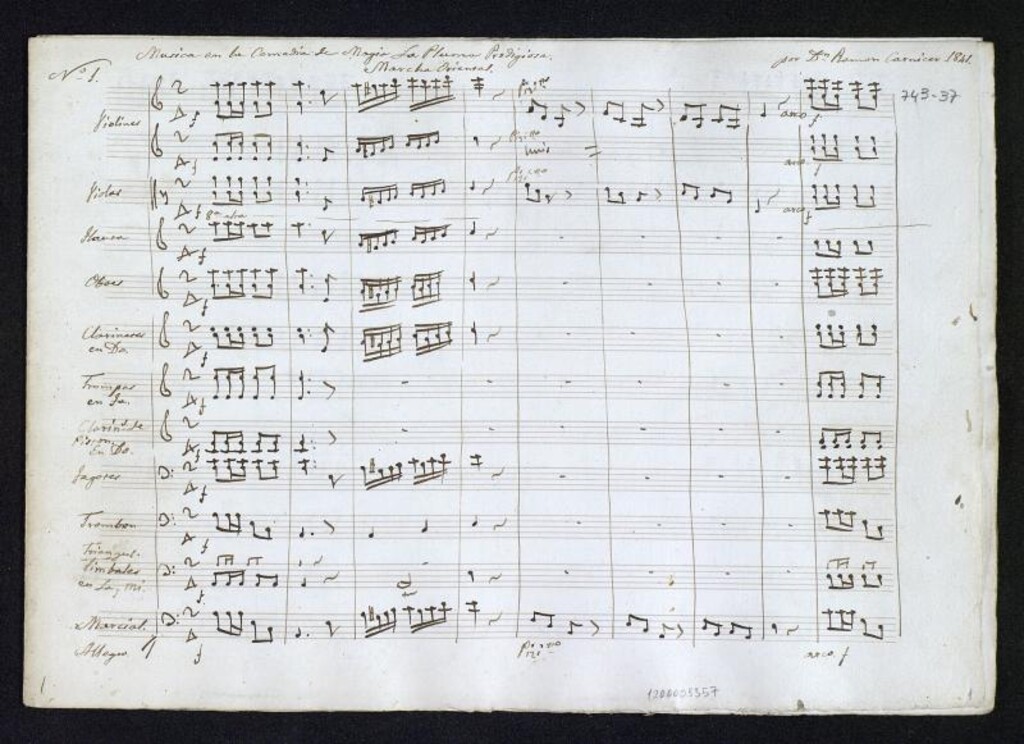 Musica en la Comedia de Magia La Pluma Prodigiosa.
Nº 1.
Marcha Oriental.
por Dn Ramon Carnicer 1841.
743-37
Violines
f
Pizzº
arco f
Pizzº
unis
arco
f
Violas
f
Pizzº
arco f
8ª alta
Flauta
f
Oboes
f
Clarinetes
en Do.
f
Trompas
en Fa.
f
Clarin de
Piston
en Do.
f
Fagotes
f
Trombon
f
Triangul.
Timbales
en La, mi.
f
Marcial.
Allegro
f
Pizzº
arco. f
1200005357
1